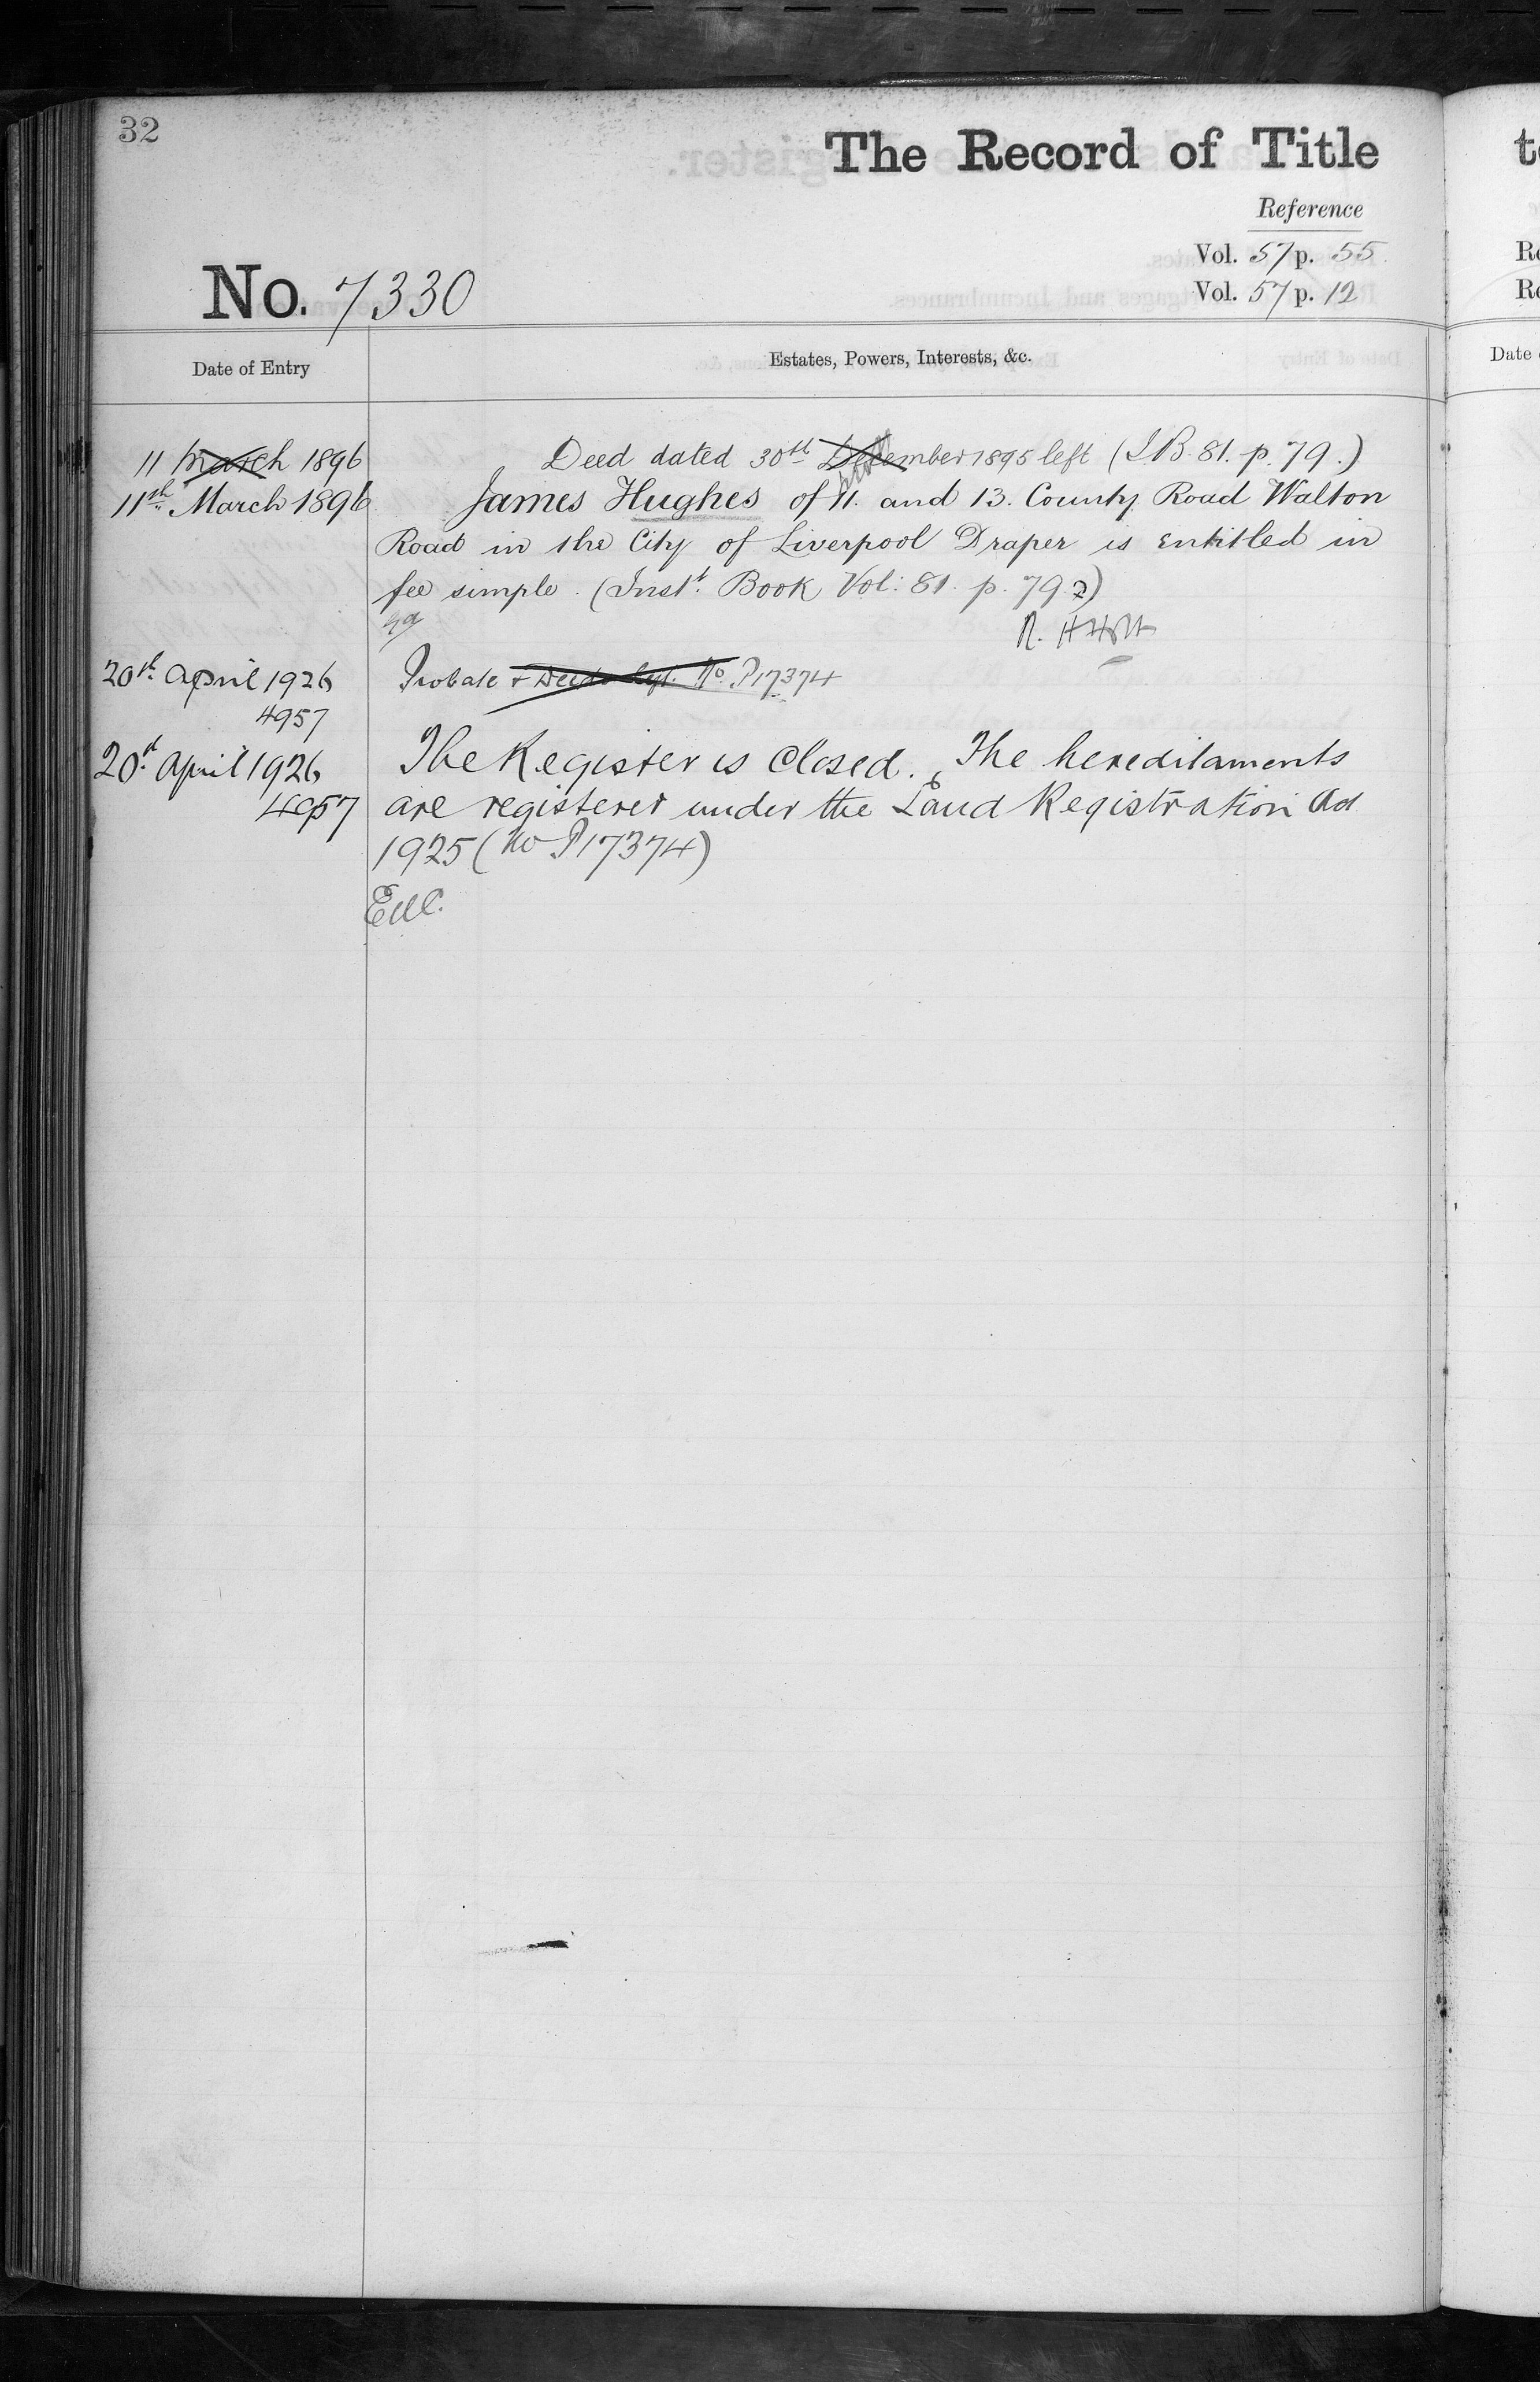 32
The Record of Title
Reference
Vol. 57 p. 55
No. 7330
Vol. 57 p. 12
Date of Entry
Estates, Powers, Interests, &c.
11 March 1896 Deed dated 30th December 1895 left (I.B. 81. p. 79.)
11th March 1896 James Hughes of 11. and 13. County Road Walton
Road in the City of Liverpool Draper is entitled in
fee simple. (Inst. Book Vol: 81. p. 79.)
20th April 1926 Probate & Deeds No. P17374
4957
20th April 1926 The Register is Closed. The hereditaments
4957 are registered under the Land Registration Act
1925 (No P17374)
t
Date